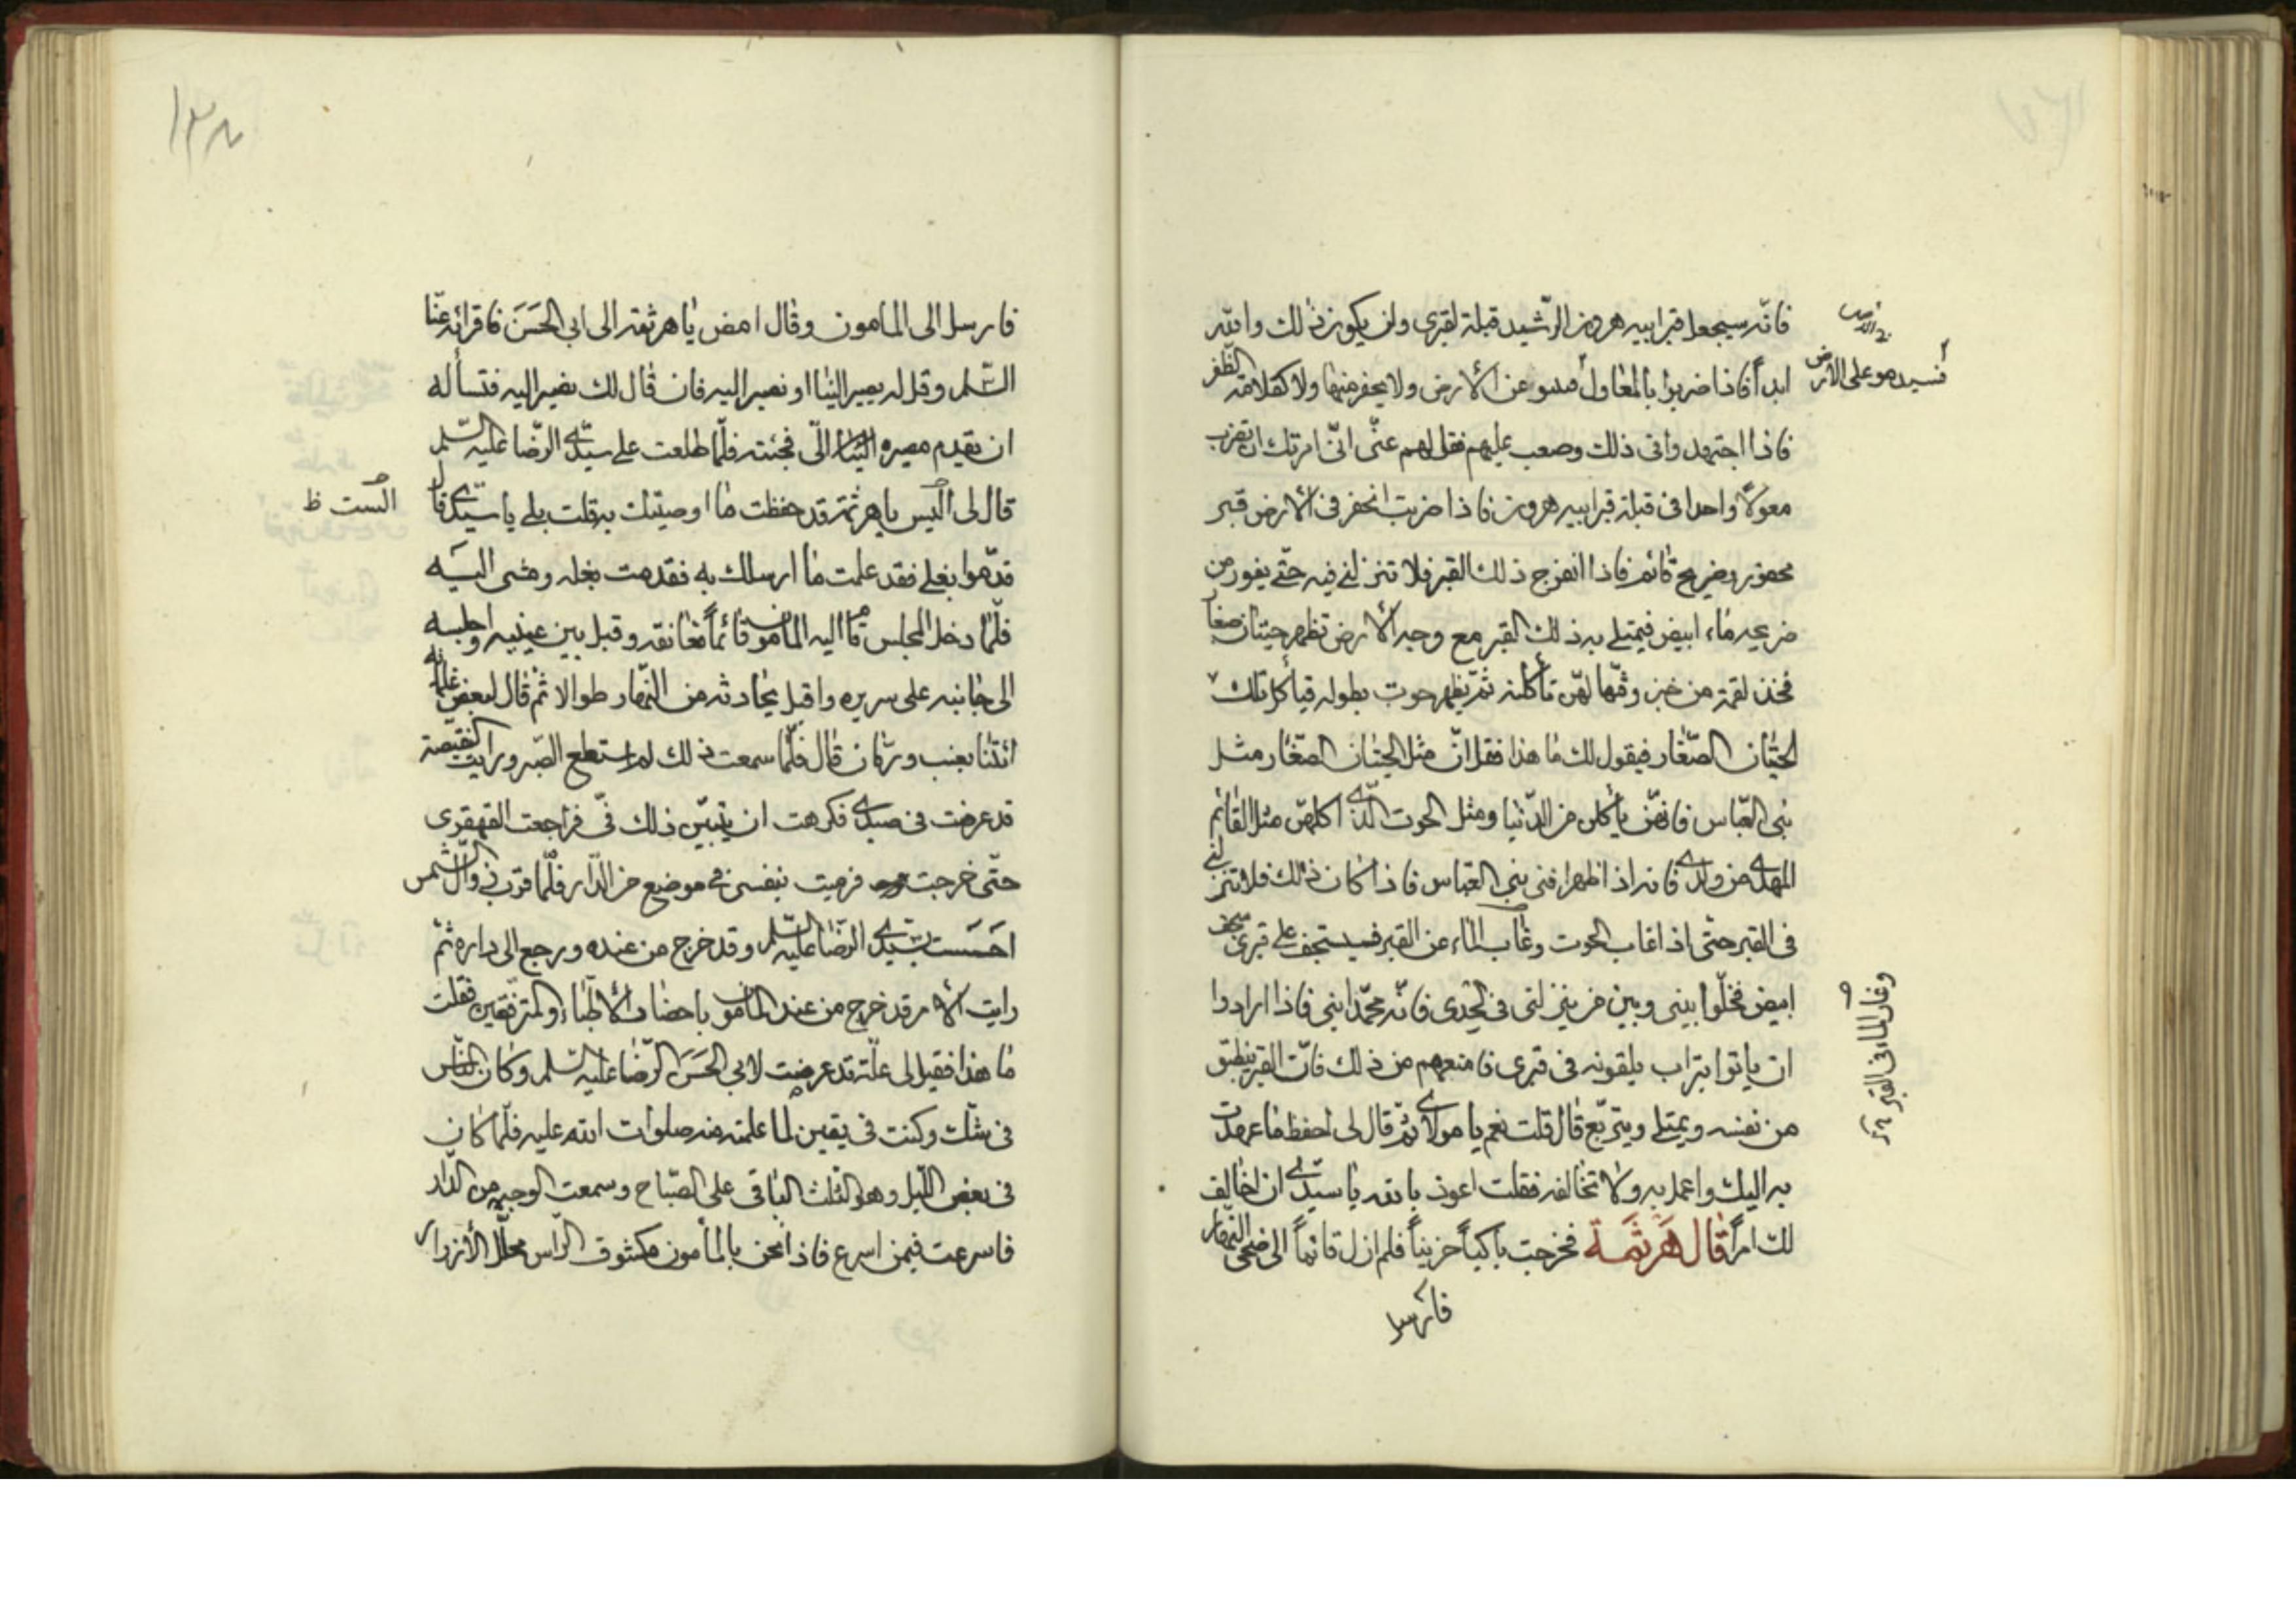 فانّه سيجعل قبر ابيه هرون الرّشيد قبلة لقبرى ولن يكون ذلك والله
ابداً فاذا ضربوا بالمعاول عن الأرض ولا يحفر منها ولا كقلامة الظّفر
فاذا اجتهد واتى ذلك وصعب عليهم فقل لهم عنّى انّى امرتك ان تضرب
معولاً واحدا فى قبلة قبر ابيه هرون فاذا ضربت انحفر فى الأرض قبر
محفور وضريح قائم فاذا انفرج ذلك القبر فلا تنزلنى فيه حتّى يفور من
ضريحه ماء ابيض فيمتلى به ذلك القبر مع وجه الأرض تظهر حيتان صغار
فخذ لقمة من خبز وفتّها لهنّ تأكلنه ثمّ يظهر حوت بطوله فيأكل تلك
الحيتان الصّغار فيقول لك ما هذا فقل انّ مثل الحيتان الصّغار مثل
بنى العبّاس فانهنّ يأكلن من الدّنيا ومثل الحوت الّذى اكلهنّ مثل القائم
المهدى من ولدى فانه اذا ظهر افنى بنى العبّاس فاذا كان ذلك فلا تنزلنى
فى القبر حتّى اذا غاب الحوت وغاب الماء عن القبر على قبرى
ابيض فخلّوا بينى وبين من ينزلنى فى لحدى فانّه محمّد ابنى فاذا ارادوا
ان ياتوا بتراب يلقونه فى قبرى فامنعهم من ذلك فانّ القبر ينطبق
من نفسه ويمتلى ويتربّع قال قلت نعم يا مولاى ثمّ قال لى احفظ ما عهدت
به اليك واعمل به ولا تخالفه فقلت اعوذ بالله يا سيّدى ان اخالف
لك امراً قال هَرثَمة فخرجت باكياً حزيناً فلم ازل قائماً الى ضحى النّهار
فارسل
فسيدهو على الأرض
وغار الماء فى القبر
١٣٨
فارسل الى المامون وقال امض يا هرثمة الى ابى الحَسَن فاقرائه عنّا
السّلم وقل له يصير الينا او نصير اليه فان قال لك نصير اليه فتسأله
ان يقدم مصيره الىّ فجئته فلمّا طلعت على سيّدى الرّضا عليه السّلم
قال لى اليس يا هرثمة قد حفظت ما اوصيتك به قلت بلى يا سيّدى قال
قدّموا بغلى فقد علمت ما ارسلك به فقدمت بغله ومشى اليه
فلمّا دخل المجلس قام اليه المامون قائماً فعانقه وقبل بين عينيه واجلسه
الى جانبه على سريره واقبل يحادثه من النّهار طوالا ثمّ قال لبعض غلمانه
ائتنا بعنب ورمّان قال فلمّا سمعت ذلك لم استطع الصّبر ورايت النقيصة
قد عرضت فى فكرهت ان يتبيّن ذلك فىّ فراجعت القهقرى
حتّى خرجت فرميت بنفسى فى موضع من الدّار فلمّا قرب زوال الشّمس
احسَست بسيّدى الرّضا عليه السّلم وقد خرج من عنده ورجع الى داره ثمّ
رايت الأمر قد خرج من عند المامون باحضار الأطبّاء والمترفّقين فقلت
ما هذا فقيل لى علّة قد عرضت لابى الحَسَن الرّضا عليه السّلم وكان النّاس
فى شكّ وكنت فى يقين لما علمته منه صلوات الله عليه فلمّا كان
فى بعض اللّيل وهو الثلث الباقى على الصّباح وسمعت الوجبة من الدّار
فاسرعت فيمن اسرع فاذا نحن بالمأمون مكشوف الرّاس محلّل الأزرار
الست ظ